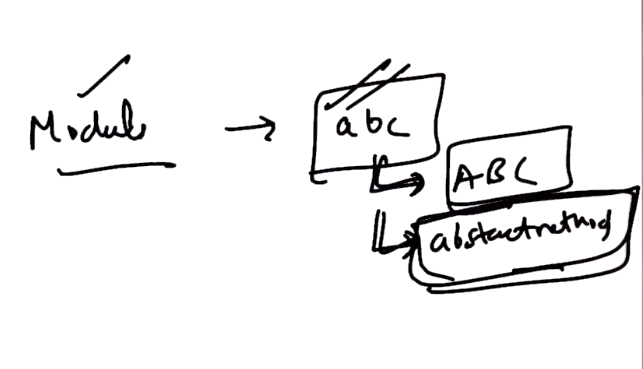 Module → abc
ABC
abstractmethod